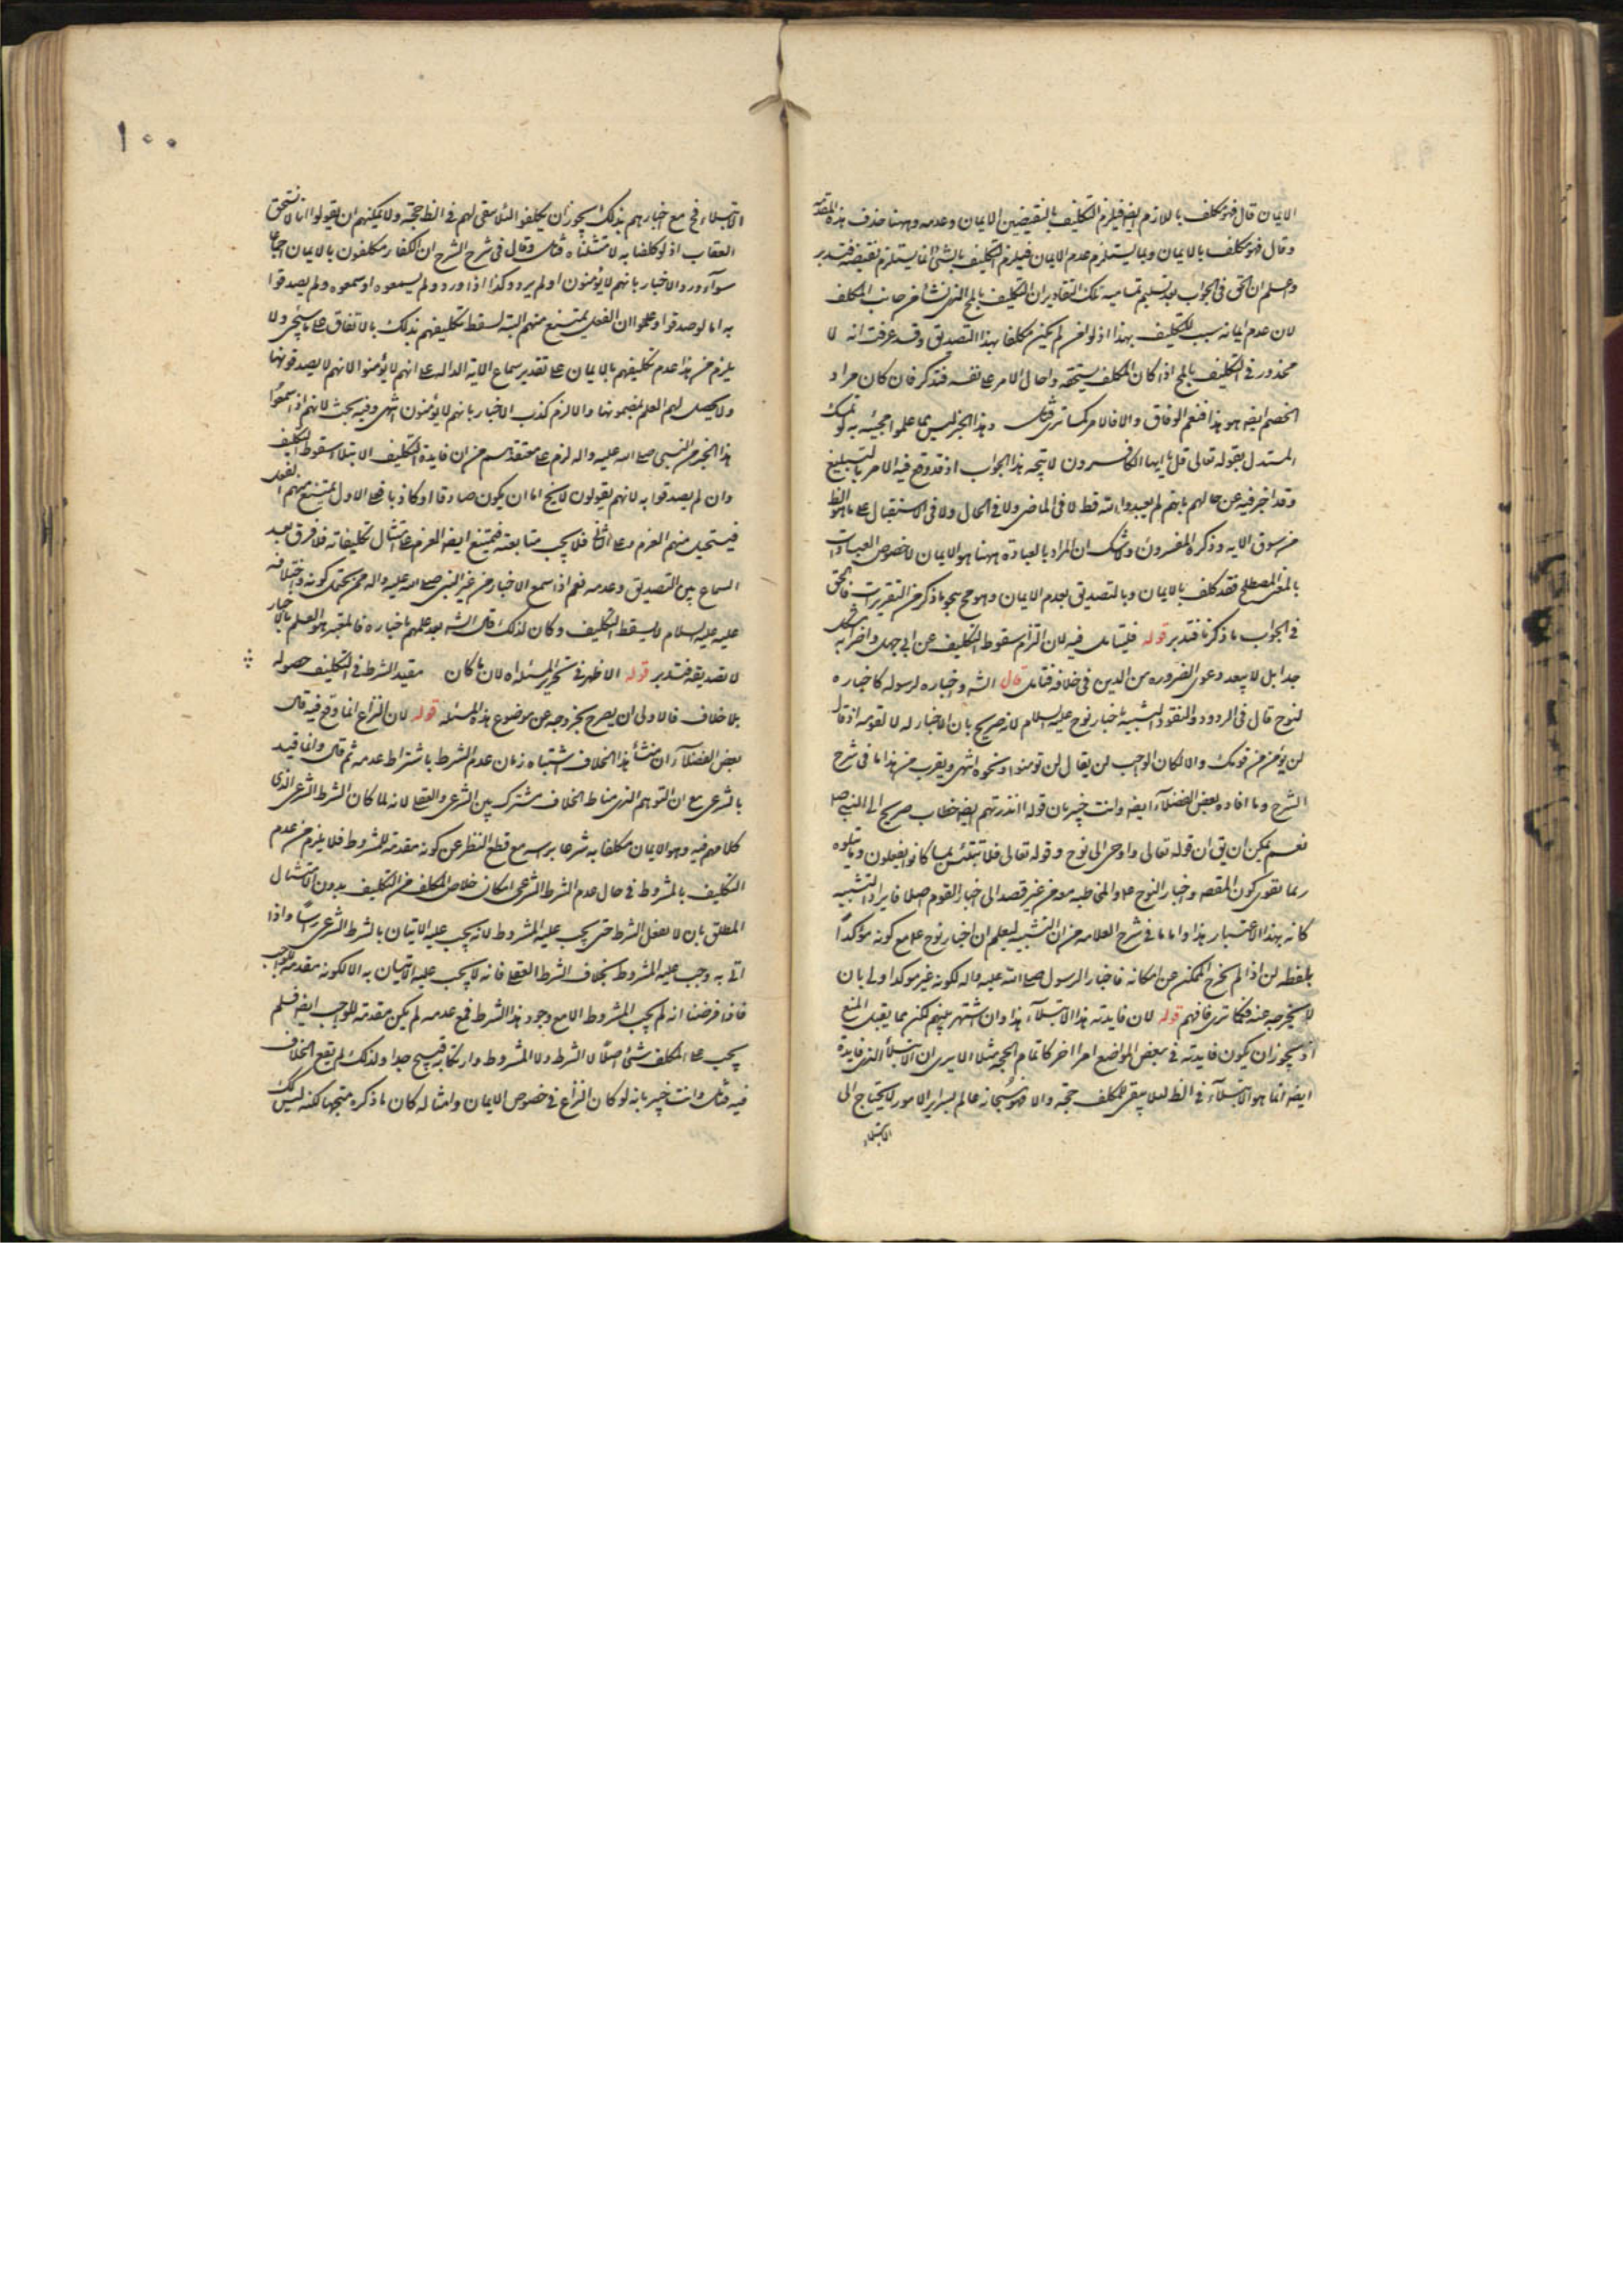 الايمان قال فهو مكلف باللازم ايضا فيلزم التكليف بالنقيضين الايمان وعدمه وههنا حذف هذه المقدمة
وقال فهو مكلف بالايمان وبما يستلزم عدم الايمان فيلزم التكليف بالشئ وبما يستلزم نقيضه فتدبر
واعلم ان الحق فى الجواب بعد تسليم تمامية تلك التقادير ان التكليف بالمح الذى نشا من جانب المكلف
لان عدم ايمانه سبب للتكليف بهذا اذ لو امن لم يكن مكلفا بهذا التصديق وقد عرفت انه لا
محذور فى التكليف بالمح اذا كان المكلف يستحقه واحال الامر على نفسه فتذكر فان كان مراد
الخصم ايضه هو هذا فنعم الوفاق والا فالامر كما ترى قال وهذا الخبر ليس مما علموا مجيئه به لو تمسك
المستدل بقوله تعالى قل يا ايها الكافرون لا يتجه هذا الجواب اذ قد وقع فيه الامر بالتبليغ
وقد اخبر فيه عن حالهم بانهم لم يعبدوا الله قط لا فى الماضى ولا فى الحال ولا فى الاستقبال على ما هو الظ
من سوق الايه وذكره المفسرون ولا شك ان المراد بالعبادة ههنا هو الايمان لا خصوص العبادات
بالمعنى المصطلح فقد كلف بالايمان وبالتصديق بعدم الايمان وهو مح بنحو ما ذكر من التقريرات فالحق
فى الجواب ما ذكرنا فتدبر قوله فليتامل فيه لان التزام سقوط التكليف عن ابى جهل واضرابه مشكل
جدا بل لا يبعد دعوى الضروره من الدين فى خلافه فتامل قال الشه واخباره لرسوله كاخباره
لنوح قال فى الردود والنقود التشبيه باخبار نوح عليه السلام لانه صريح بان الاخبار له لا لقومه اذ قال
لن يؤمن من قومك والا لكان الواجب ان يقال لن تومنوا ونحوه انتهى ويقرب من هذا ما فى شرح
الشرح وما افاده بعض الفضلآء ايضه وانت خبير بان قوله اانذرتهم ايضه خطاب صريح الى النبى صلى
نعم يمكن ان يق ان قوله تعالى واوحى الى نوح وقوله تعالى فلا تبتئس بما كانوا يفعلون وما يتلوه
ربما تقوى كون المقصه اخبار النوح عم والمخاطبه معه من غير قصد الى اخبار القوم اصلا فايراد التشبيه
كانه بهذا الاعتبار هذا واما ما فى شرح العلامه من ان التشبيه ليعلم ان اخبار نوح عم مع كونه مؤكداً
بلفظه لن اذا لم يخرج الممكن عن امكانه فاخبار الرسول صلى الله عليه واله لكونه غير موكد اولى بان
لا يخرجه عنه فكما ترى فافهم قوله لان فايدته هذا الابتلآء هذا وان اشتهر بينهم لكن مما يقبل المنع
اذ يجوز ان يكون فايدته فى بعض المواضع امرا اخر كاتمام الحجه مثلا الا يرى ان الابتلآء الذى فايدة
ايضه انما هو الابتلآء فى الظ لئلا يبقى للمكلف حجته والا فهو سبحانه عالم بسراير الامور لا يحتاج الى
الابتلاء
١٠٠
الابتلاء فح مع اخبارهم بذلك يجوز ان يكلفوا لئلا يبقى لهم فى الظ حجته ولا يمكنهم ان يقولوا انا لا نستحق
العقاب اذ لو كلفنا به لامتثلناه فتامل وقال فى شرح الشرح ان الكفار مكلفون بالايمان اجماعا
سوآء ورد الاخبار بانهم لا يؤمنون او لم يرد وكذا اذا ورد ولم يسمعوه او سمعوه ولم يصدقوا
به اما لو صدقوا وعلموا ان الفعل يمتنع منهم البته لسقط تكليفهم بذلك بالاتفاق على ما سيجى ولا
يلزم من هذا عدم تكليفهم بالايمان على تقدير سماع الاية الداله على انهم لا يؤمنوا لانهم لا يصدقونها
ولا يحصل لهم العلم بمضمونها والا لزم كذب الاخبار بانهم لا يؤمنون انتهى وفيه بحث لانهم اذا سمعوا
هذا الخبر من النبى صلى الله عليه واله لزم على معتقدهم من ان فايدة التكليف الابتلاء سقوط التكليف
وان لم يصدقوا به لانهم يقولون لا يخ اما ان يكون صادقا او كاذبا فعلى الاول يمتنع منهم الفعل
فيستحيل منهم العزم وعلى الثانى فلا يجب متابعته فيمتنع ايضه العزم على امتثال تكليفاته فلا فرق بعد
السماع بين التصديق وعدمه نعم اذا سمع الاخبار من غير النبى صلى الله عليه واله ممن يحتمل كونه واختلافه
عليه عليه السلام لا يسقط التكليف وكان لذلك قال الشه بعد علمهم باخباره فالمعتبر هو العلم بالاخبار
لا تصديقه فتدبر قوله الاظهر فى تحرير المسئله اه لان ما كان مقيد الشرط فى التكليف حصوله
بلا خلاف فالاولى ان يصرح بخروجه عن موضوع هذه المسئله قوله لان النزاع انما وقع فيه قال
بعض الفضلآء ان منشأ هذا الخلاف اشتباه زمان عدم الشرط باشتراط عدمه ثم قال وانما قيد
بالشرعى مع ان التوهم الذى مناط الخلاف مشترك بين الشرعى والعقلى لانه لما كان الشرط الشرعى الذى
كلامهم فيه وهو الايمان مكلفا به شرعا براسه مع قطع النظر عن كونه مقدمته للمشروط فلا يلزم من عدم
التكليف بالمشروط فى حال عدم الشرط الشرعى امكان خلاص المكلف من التكليف بدون الامتثال
المطلق بان لا يفعل الشرط حتى يجب عليه المشروط لانه يجب عليه الاتيان بالشرط الشرعى راسا واذا
اتى به وجب عليه المشروط بخلاف الشرط العقلى فانه لا يجب عليه الاتيان به الا لكونه مقدمه للواجب
فاذا فرضنا انه لم يجب المشروط الا مع وجود هذا الشرط فمع عدمه لم يكن مقدمته للواجب ايضه فلم
يجب على المكلف شئ اصلاً لا الشرط ولا المشروط وارتكابه قبيح جدا ولذلك لم يقع الخلاف
فيه فتامل وانت خبير بانه لو كان النزاع فى خصوص الايمان وامثاله كان ما ذكره متجها لكنه ليس كذلك